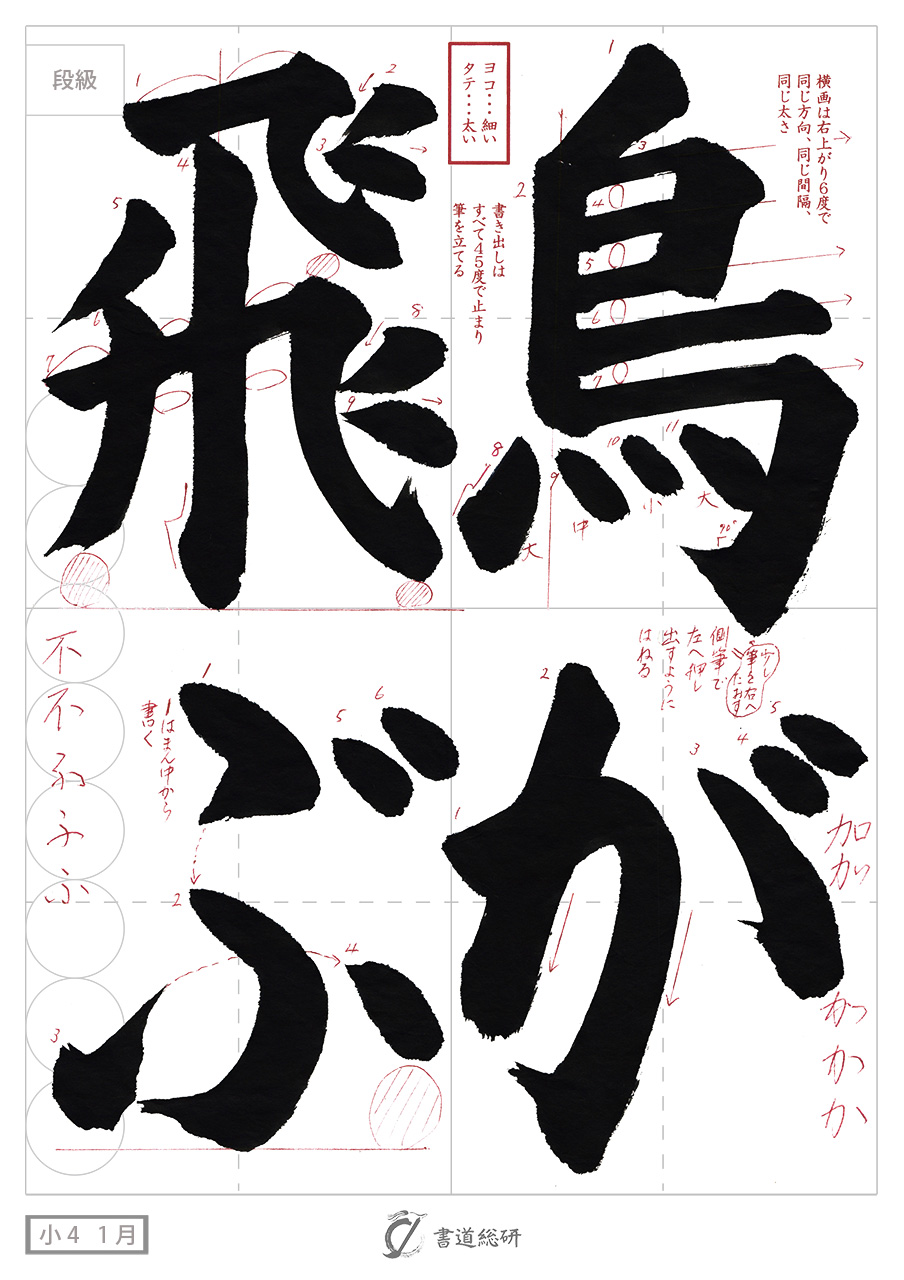 鳥が
飛ぶ
段級
ヨコ・・・細い
タテ・・・太い
横画は右上がり6度で
同じ方向、同じ間隔、
同じ太さ
書き出しは
すべて45度で止まり
筆を立てる
1
2
3
4
5
6
7
8
9
10
11
大
中
小
大
90°
1
2
3
4
5
6
7
8
9
少し
筆を右へ
たおす
側筆で
左へ押し
出すように
はねる
1
2
3
4
5
加
か
か
か
1
2
3
4
5
6
1はまん中から
書く
不
不
ふ
小4 1月
書道総研